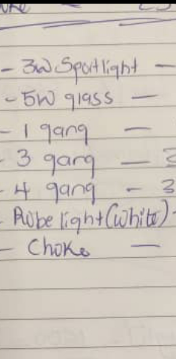 - 3W Spotlight —
- 5W glass —
- 1 gang —
- 3 gang —
- 4 gang - 3
- light (White) -
- Choke —